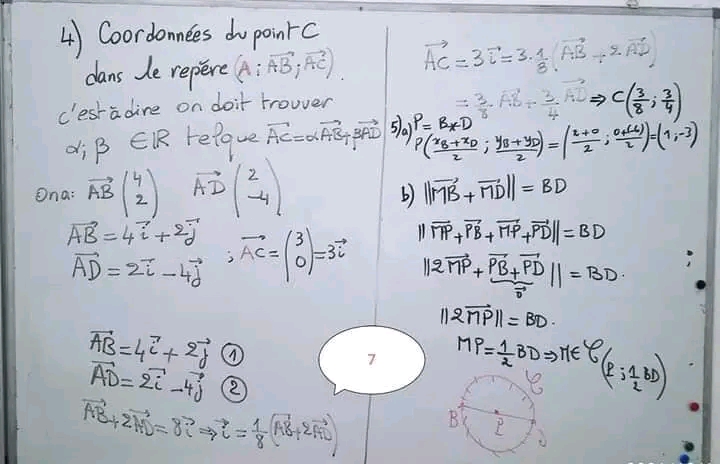 4) Coordonnées du point C
dans le repère (A ; AB⃗ ; AC⃗)
c'est à dire on doit trouver
α; β ∈ IR tel que AC⃗ = αAB⃗ + βAD⃗
On a: AB⃗ (4 2) AD⃗ (2 -4)
AB⃗ = 4i⃗ + 2j⃗
AD⃗ = 2i⃗ - 4j⃗ ; AC⃗ = (3 0) = 3i⃗
AB⃗ = 4i⃗ + 2j⃗ ①
AD⃗ = 2i⃗ - 4j⃗ ②
AB⃗ + 2AD⃗ = 8i⃗ ⇒ i⃗ = 1/8 (AB⃗ + 2AD⃗)
AC⃗ = 3i⃗ = 3·1/8 (AB⃗ + 2AD⃗)
= 3/8 AB⃗ + 3/4 AD⃗ ⇒ C(3/8 ; 3/4)
5) a) P = B*D
P((xB+xD)/2 ; (yB+yD)/2) = ( ) = (1, -3)
b) ||MB⃗ + MD⃗|| = BD
||MP⃗ + PB⃗ + MP⃗ + PD⃗|| = BD
||2MP⃗ + PB⃗ + PD⃗|| = BD.
0⃗
||2MP⃗|| = BD.
MP = 1/2 BD ⇒ M ∈ 𝒞(P ; 1/2 BD)
7
𝒞
B
P